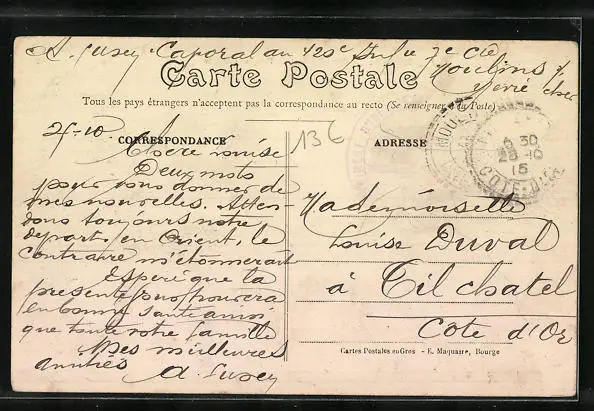 A. Lusey Caporal au 120e Inf ie 7e Cie
Moulins s/
Yevre cher
Carte Postale
Tous les pays étrangers n'acceptent pas la correspondance au recto (Se renseigner à la Poste)
25-10
136
CORRESPONDANCE
ADRESSE
Chère Louise
Deux mots
pour vous donner de
mes nouvelles. Atten-
dons toujours notre
départ en Orient, le
contraire m'étonnerait
Espère que la
présente vous trouvera
en bonne santé ainsi
que toute votre famille
Mes meilleures
amitiés A. Lusey
30
28-10
15
COTE-D'OR
Mademoiselle
Louise Duval
à Til chatel
Côte d'Or
Cartes Postales en Gros - E. Maquaire, Bourge